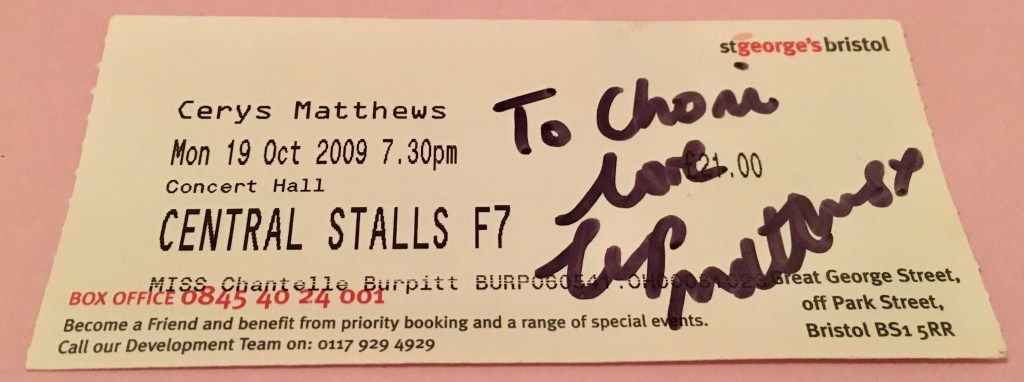 st george's bristol
Cerys Matthews
Mon 19 Oct 2009 7.30pm
£21.00
Concert Hall
CENTRAL STALLS F7
To Choni
love
Cerys Matthews x
MISS Chantelle Burpitt
BOX OFFICE 0845 40 24 001
Become a Friend and benefit from priority booking and a range of special events.
Call our Development Team on: 0117 929 4929
Great George Street,
off Park Street,
Bristol BS1 5RR